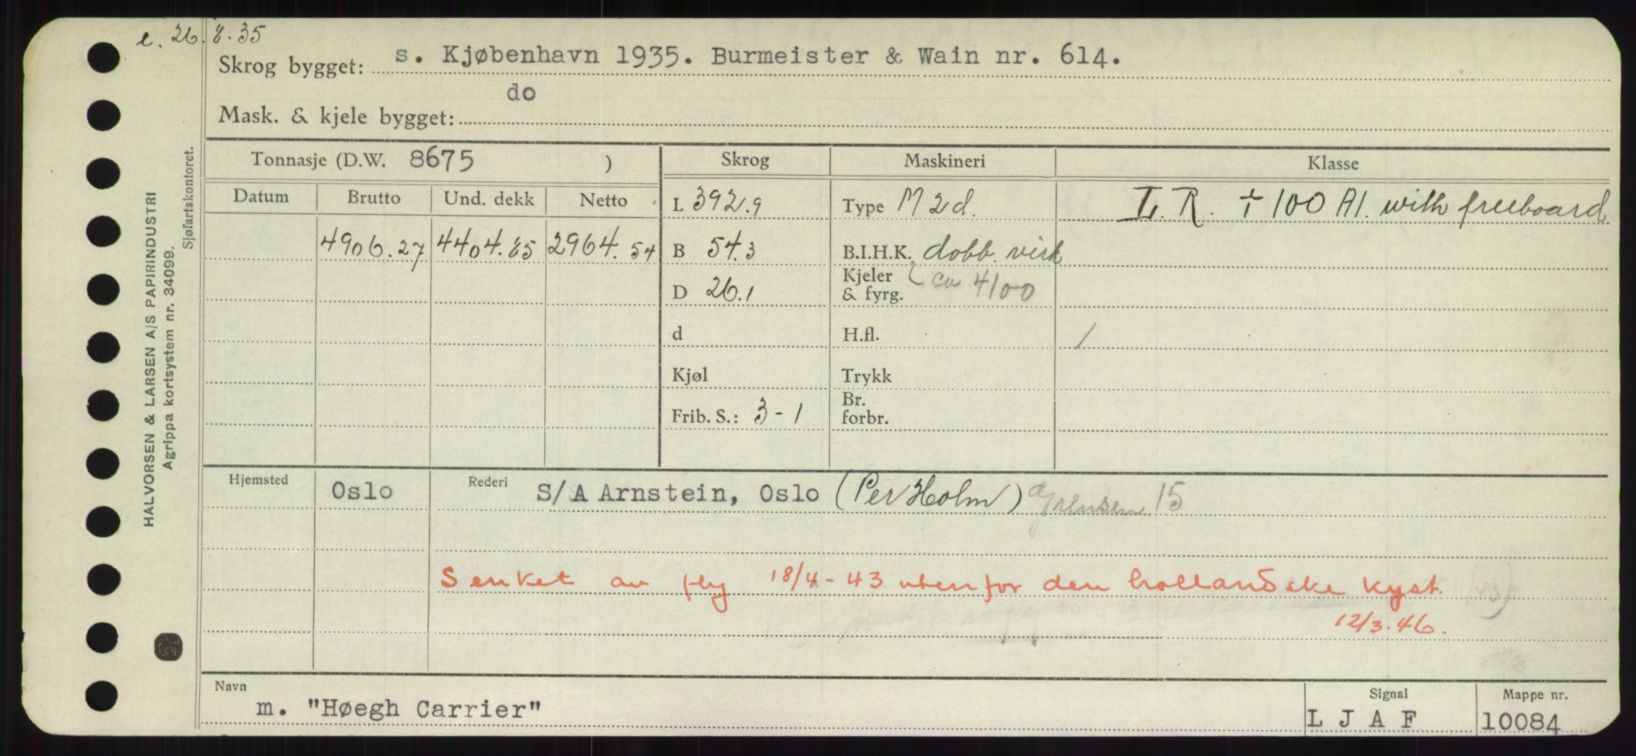 e. 26.8.35
Skrog bygget: s. Kjøbenhavn 1935. Burmeister & Wain nr. 614.
Mask. & kjele bygget: do
HALVORSEN & LARSEN A/S PAPIRINDUSTRI
Agrippa kortsystem nr. 34099.
Sjøfartskontoret.
Tonnasje (D.W. 8675 )
Skrog
Maskineri
Klasse
Datum
Brutto
Und. dekk
Netto
L 392.9
Type M 2d.
L. R. + 100 A1. with freeboard
4906.27
4404.85
2964.54
B 54.3
B.I.H.K. dobb. virk
D 26.1
Kjeler & fyrg. ca 4100
d
H.fl.
Kjøl
Trykk
Frib. S.: 3-1
Br. forbr.
Hjemsted
Oslo
Rederi
S/A Arnstein, Oslo (Per Holm) Grensen 15
Senket av fly 18/4-43 utenfor den hollandske kyst.
12/3.46.
Navn
m. "Høegh Carrier"
Signal
L J A F
Mappe nr.
10084